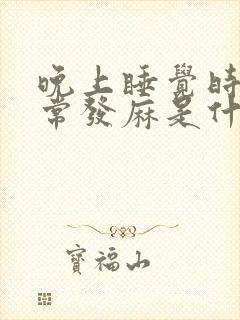 晚上睡覺時
常發麻是什
寶福山